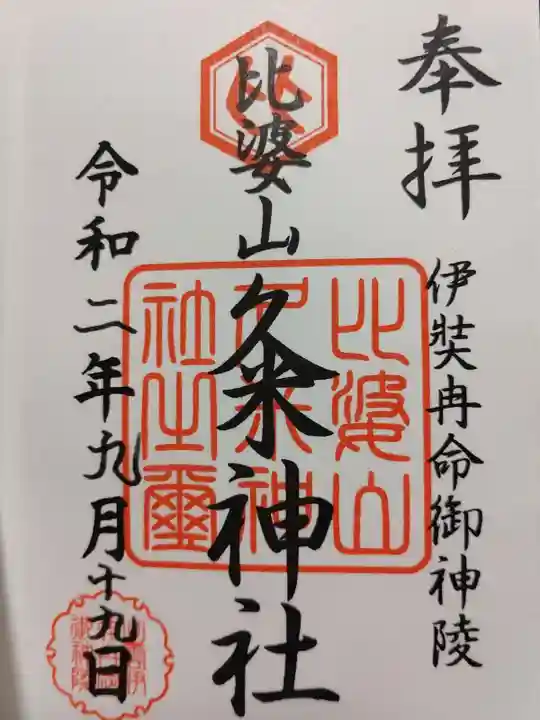 奉拝
伊弉冉命御神陵
比婆山久米神社
比婆山
久米神
社之璽
令和二年九月十九日